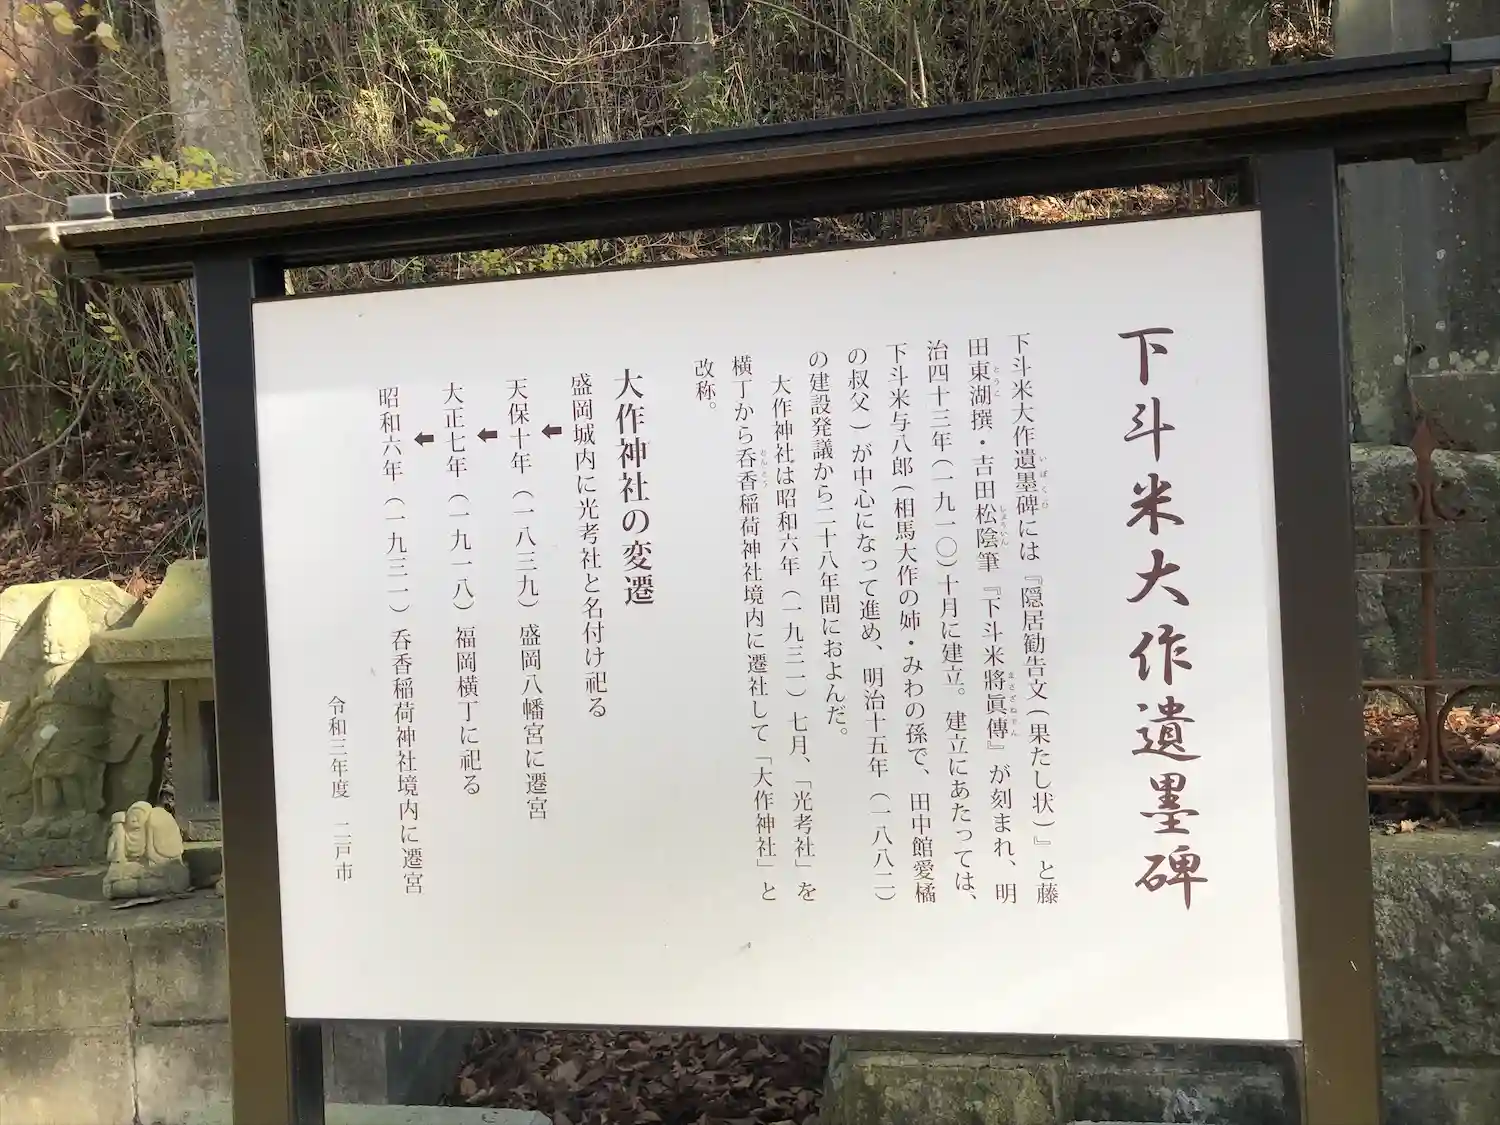 下斗米大作遺墨碑
下斗米大作遺墨碑には『隠居勧告文(果たし状)』と藤
田東湖撰・吉田松陰筆『下斗米將眞傳』が刻まれ、明
治四十三年(一九一〇)十月に建立。建立にあたっては、
下斗米与八郎(相馬大作の姉・みわの孫で、田中館愛橘
の叔父)が中心になって進め、明治十五年(一八八二)
の建設発議から二十八年間におよんだ。
大作神社は昭和六年(一九三一)七月、「光考社」を
横丁から呑香稲荷神社境内に遷社して「大作神社」と
改称。
大作神社の変遷
盛岡城内に光考社と名付け祀る
天保十年(一八三九)盛岡八幡宮に遷宮
大正七年(一九一八)福岡横丁に祀る
昭和六年(一九三一)呑香稲荷神社境内に遷宮
令和三年度 二戸市